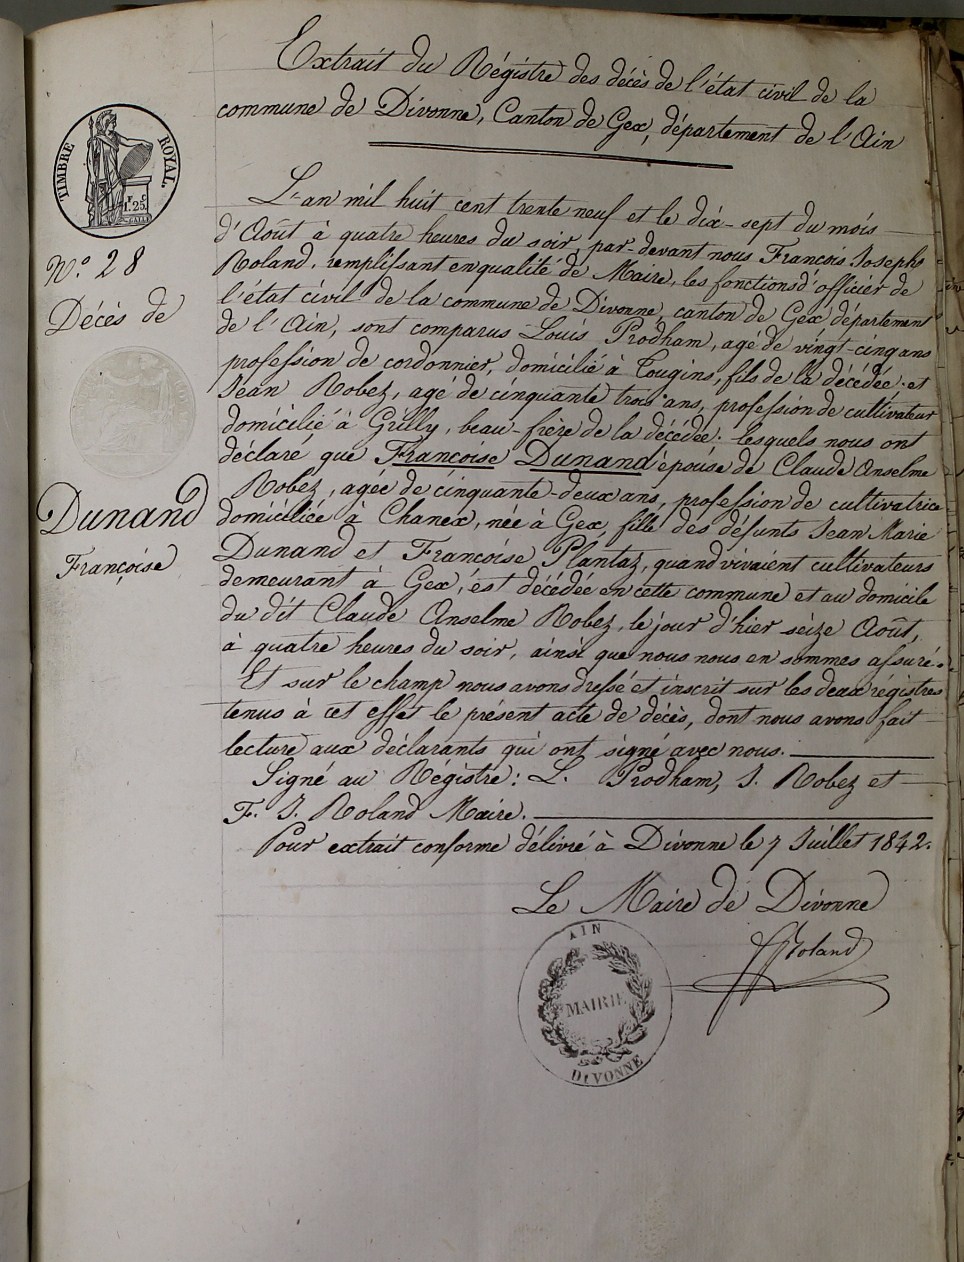 Extrait du Régistre des décès de l'état civil de la
commune de Divonne, Canton de Gex, département de l'Ain
TIMBRE ROYAL
1. 25.
N.º 28
Décès de
Dunand
Françoise
L'an mil huit cent trente neuf et le dix-sept du mois
d'Août à quatre heures du soir, par-devant nous François Joseph
Roland, remplissant en qualité de Maire, les fonctions d'officier de
l'état civil de la commune de Divonne, canton de Gex département
de l'Ain, sont comparus Louis Prodham, agé de vingt-cinq ans
profession de cordonnier, domicilié à Tougins, fils de la décédée. et
Jean Robez, agé de cinquante trois ans, profession de cultivateur
domicilié à Grilly, beau-frère de la décédée. lesquels nous ont
déclaré que Françoise Dunand épouse de Claude Anselme
Robez, agée de cinquante-deux ans, profession de cultivatrice
domiciliée à Chanex, née à Gex fille des défunts Jean Marie
Dunand et Françoise Plantaz, quand vivaient cultivateurs
demeurant à Gex, est décédée en cette commune et au domicile
du dit Claude Anselme Robez, le jour d'hier seize Août,
à quatre heures du soir, ainsi que nous nous en sommes assuré.
Et sur le champ nous avons dressé et inscrit sur les deux régistres
tenus à cet effet le présent acte de décès, dont nous avons fait
lecture aux déclarants qui ont signé avec nous.
Signé au Régistre: L. Prodham, J. Robez et
F. J. Roland Maire.
Pour extrait conforme délivré à Divonne le 7 Juillet 1842.
Le Maire de Divonne
Roland
AIN
MAIRIE
DIVONNE